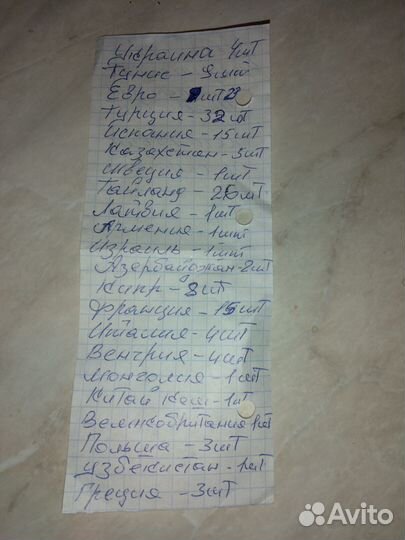 Украина 4шт
Тунис - 9шт
Евро - шт 28
Турция - 32шт
Испания - 15шт
Казахстан - 5шт
Швеция - 1шт
Тайланд - 26шт
Латвия - 1шт
Армения - 1шт
Израиль - 1шт
Азербайджан - 2шт
Кипр - 8шт
Франция - 15шт
Италия - 4шт
Венгрия - 4шт
Монголия - 1шт
Китай - 1шт
Великобритания 1шт
Польша - 3шт
Узбекистан - 1шт
Греция - 3шт
Avito